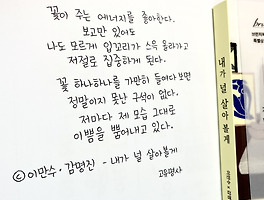 꽃이 주는 에너지를 좋아한다.
보고만 있어도
나도 모르게 입꼬리가 스윽 올라가고
저절로 집중하게 된다.
꽃 하나하나를 가만히 들여다보면
정말이지 못난 구석이 없다.
저마다 제 모습 그대로
이쁨을 뿜어내고 있다.
ⓒ 이만수·감명진 - 내가 널 살아볼게
고유명사
내가 널 살아볼게